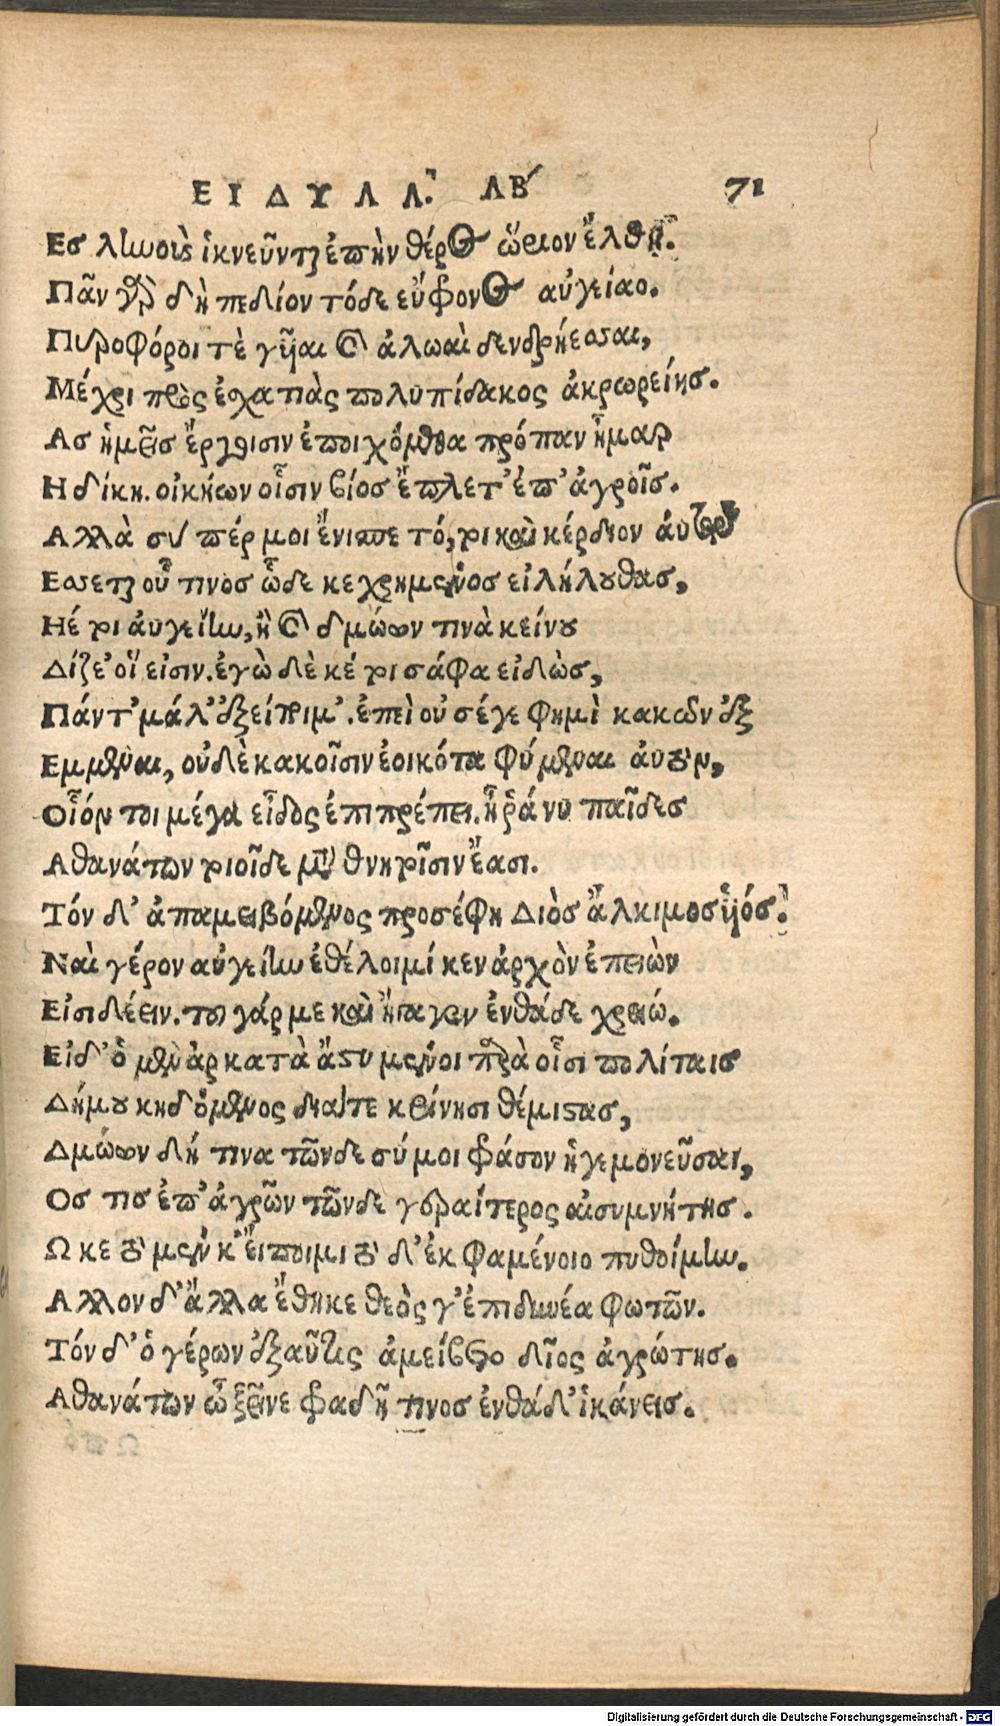 ΕΙΔΥΛΛ. ΛΒ 71
Ες ληνοὺς ἱκνεῦνται ἐπὴν θέρος ὥριον ἔλθῃ.
Πᾶν γὰρ δὴ πεδίον τόδε εὔφρονος αὐγείαο.
Πυροφόροι τὲ γύαι καὶ ἀλωαὶ δενδρήεσσαι,
Μέχρι πρὸς ἐσχατιὰς πολυπίδακος ἀκρωρείης.
Ας ἡμεῖς ἔργοισιν ἐποιχόμεθα πρόπαν ἦμαρ
Η δίκη. οἰκήων οἷσιν βίος ἔπλετ' ἐπ' ἀγροῖς.
Αλλὰ σύ πέρ μοι ἔνισπε τό,τοι καὶ κέρδιον αὐτῷ
Εσσεται οὗ τινος ὧδε κεχρημένος εἰλήλουθας,
Ηέ τοι αὐγείην, ἢ καὶ δμώων τινὰ κείνου
Δίζε' οἵ εἰσιν. ἐγὼ δὲ κέ τοι σάφα εἰδὼς,
Πάντ' μάλ' ἐξείποιμ'. ἐπεὶ οὐ σέγε φημὶ κακῶν ἐξ
Εμμεναι, οὐδὲ κακοῖσιν ἐοικότα φύμεναι αὐτόν,
Οἷόν τοι μέγα εἶδος ἐπιπρέπει. ἦ ῥά νυ παῖδες
Αθανάτων τοιοῖδε μετὰ θνητοῖσιν ἔασι.
Τόν δ' ἀπαμειβόμενος προσέφη Διὸς ἄλκιμος υἱός.
Ναὶ γέρον αὐγείην ἐθέλοιμί κεν ἀρχὸν ἐπειὼν
Εἰσιδέειν. τοῦ γάρ με καὶ ἤγαγεν ἐνθάδε χρειώ.
Εἰ δ' ὁ μὲν ἀρ κατὰ ἄστυ μένοι παρὰ οἷσι πολίταις
Δήμου κηδόμενος διαὶτε κρίνησι θέμιστας,
Δμώων δή τινα τῶνδε σύ μοι φράσον ἡγεμονεῦσαι,
Ος τις ἐπ' ἀγρῶν τῶνδε γεραίτερος αἰσυμνήτης.
Ω κε τὸ μέν κ' εἴποιμι τὸ δ' ἐκ φαμένοιο πυθοίμην.
Αλλον δ' ἄλλα ἔθηκε θεὸς γ' ἐπιδευέα φωτῶν.
Τόν δ' ὁ γέρων ἐξαῦτις ἀμείβετο δῖος ἀγρώτης.
Αθανάτων ὦ ξεῖνε φραδῇ τινος ἐνθάδ' ἱκάνεις.
Digitalisierung gefördert durch die Deutsche Forschungsgemeinschaft - DFG